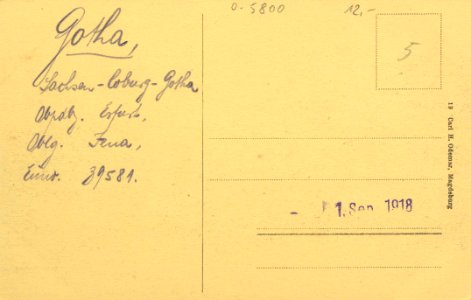 o-5800 12,-
Gotha,
Sachsen-Coburg-Gotha
Erfurt,
Jena,
Einw. 39581.
5
1. Sep. 1918
19 Carl H. Odemar, Magdeburg